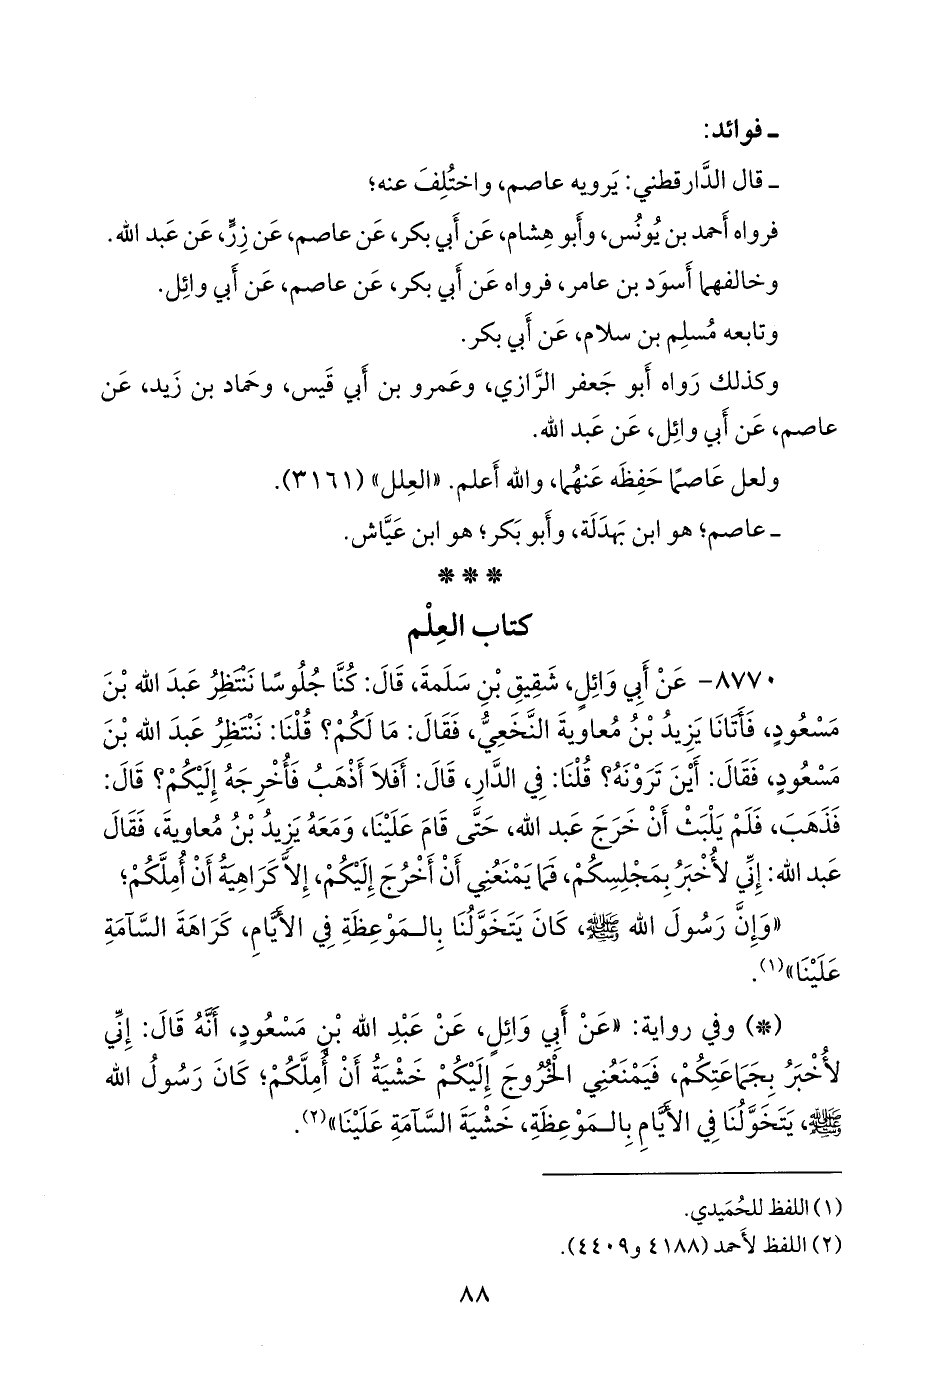 ـ فوائد:
ـ قال الدَّارقطني: يَرويه عاصم، واختُلِفَ عنه؛
فرواه أَحمد بن يُونُس، وأَبو هِشام، عَن أَبي بكر، عَن عاصم، عَن زِرٍّ، عَن عَبد الله.
وخالفهما أَسوَد بن عامر، فرواه عَن أَبي بكر، عَن عاصم، عَن أَبي وائِل.
وتابعه مُسلِم بن سلام، عَن أَبي بكر.
وكذلك رَواه أَبو جَعفر الرَّازي، وعَمرو بن أَبي قَيس، وحَماد بن زَيد، عَن
عاصم، عَن أَبي وائِل، عَن عَبد الله.
ولعل عَاصمًا حَفِظَه عَنهُما، والله أَعلم. «العِلل» (٣١٦١).
ـ عاصم؛ هو ابن بَهدَلَة، وأَبو بَكر؛ هو ابن عَيَّاش.
* * *
كتاب العِلْم
٨٧٧٠- عَنْ أَبِي وَائِلٍ، شَقِيقِ بْنِ سَلَمةَ، قَالَ: كُنَّا جُلُوسًا نَنْتَظِرُ عَبدَ الله بْنَ
مَسْعُودٍ، فَأَتَانَا يَزِيدُ بْنُ مُعاويةَ النَّخَعِيُّ، فَقَالَ: مَا لَكُمْ؟ قُلْنَا: نَنْتَظِرُ عَبدَ الله بْنَ
مَسْعُودٍ، فَقَالَ: أَيْنَ تَرَوْنَهُ؟ قُلْنَا: فِي الدَّارِ، قَالَ: أَفَلاَ أَذْهَبُ فَأُخْرِجَهُ إِلَيْكُمْ؟ قَالَ:
فَذَهَبَ، فَلَمْ يَلْبَثْ أَنْ خَرَجَ عَبد الله، حَتَّى قَامَ عَلَيْنَا، وَمَعَهُ يَزِيدُ بْنُ مُعاويةَ، فَقَالَ
عَبد الله: إِنِّي لأُخْبَرُ بِمَجْلِسِكُمْ، فَمَا يَمْنَعُنِي أَنْ أَخْرُجَ إِلَيْكُمْ، إِلاَّ كَرَاهِيَةُ أَنْ أُمِلَّكُمْ؛
«وَإِنَّ رَسُولَ الله ﷺ، كَانَ يَتَخَوَّلُنَا بِالـمَوْعِظَةِ فِي الأَيَّامِ، كَرَاهَةَ السَّآمَةِ
عَلَيْنَا»(١).
(*) وفي رواية: «عَنْ أَبِي وَائِلٍ، عَنْ عَبْدِ الله بْنِ مَسْعُودٍ، أَنَّهُ قَالَ: إِنِّي
لأُخْبَرُ بِجَمَاعَتِكُمْ، فَيَمْنَعُنِي الْخُرُوجَ إِلَيْكُمْ خَشْيَةُ أَنْ أُمِلَّكُمْ؛ كَانَ رَسُولُ الله
ﷺ، يَتَخَوَّلُنَا فِي الأَيَّامِ بِالـمَوْعِظَةِ، خَشْيَةَ السَّآمَةِ عَلَيْنَا»(٢).
(١) اللفظ للحُمَيدي.
(٢) اللفظ لأَحمد (٤١٨٨ و٤٤٠٩).
٨٨